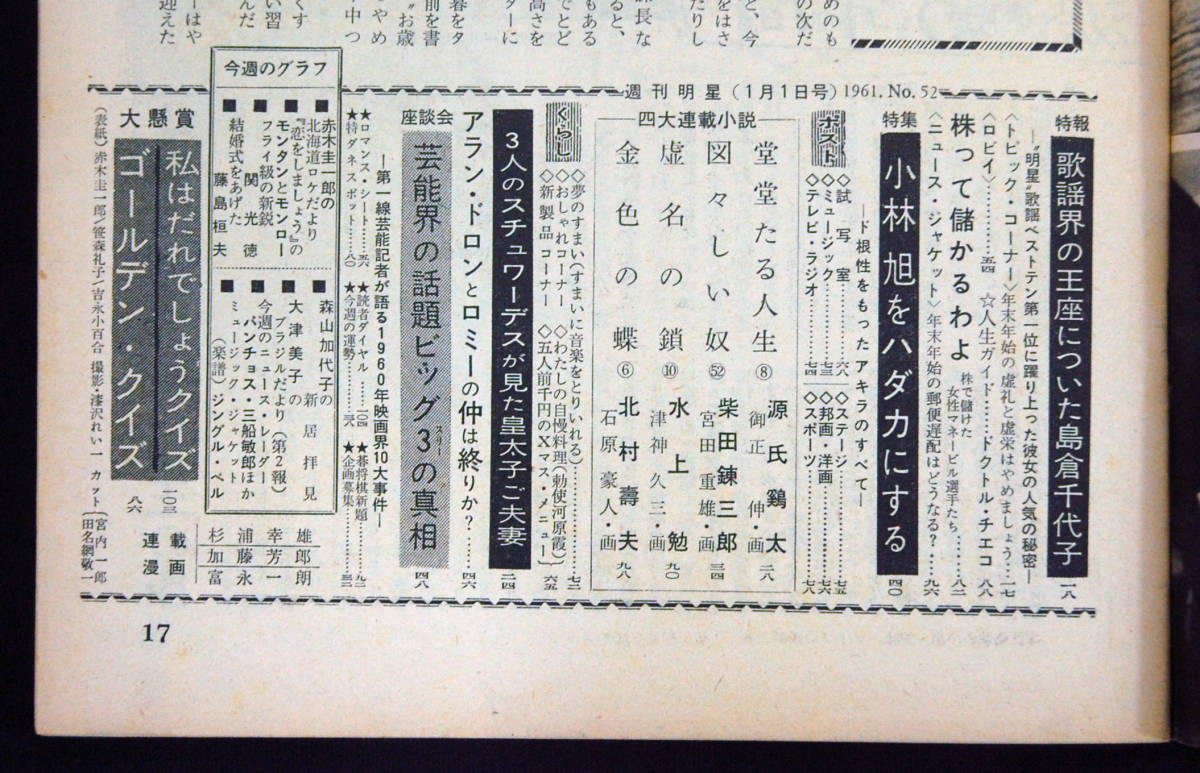 週刊明星(1月1日号)1961.No.52
特報
歌謡界の王座についた島倉千代子
―〝明星〟歌謡ベストテン第一位に躍り上った彼女の人気の秘密―
一八
〈トピック・コーナー〉年末年始の虚礼と虚栄はやめましょう…一七
〈ロビイ〉…………五四 ☆人生ガイド……ドクトル・チエコ 八八
株って儲かるわよ 株で儲けた女性マネービル選手たち……八二
〈ニュース・ジャケット〉年末年始の郵便遅配はどうなる?…九六
特集
小林旭をハダカにする
四〇
―ド根性をもったアキラのすべて―
ポスト
◇試写室……六八 ◇ステージ……七五
◇ミュージック……七三 ◇邦画・洋画……七六
◇テレビ・ラジオ……七四 ◇スポーツ……七八
四大連載小説
堂堂たる人生⑧ 源氏鶏太 御正伸・画 二八
図々しい奴㊾ 柴田錬三郎 宮田重雄・画 三四
虚名の鎖⑩ 水上勉 津神久三・画 九〇
金色の蝶⑥ 北村壽夫 石原豪人・画 九八
くらし
◇夢のすまい(すまいに音楽をとりいれる)……七二
◇おしゃれコーナー ◇わたしの自慢料理(勅使河原霞)
◇新製品コーナー ◇五人前千円のXマス・メニュー 六五
3人のスチュワーデスが見た皇太子ご夫妻
二四
アラン・ドロンとロミーの仲は終りか?……四六
座談会
芸能界の話題ビッグ3の真相
スリー
四八
―第一線芸能記者が語る1960年映画界10大事件―
★ロマンス・シート……五六 ★読者ダイヤル……一〇四 ★碁将棋新題……九二
★特ダネスポット……八〇 ★今週の運勢……三八 ★企画募集……三二
今週のグラフ
■赤木圭一郎の北海道ロケだより
■『恋をしましょう』のモンタンとモンロー
■フライ級の新鋭 関光徳
■結婚式をあげた 藤島桓夫
■森山加代子の新居拝見
■大津美子のブラジルだより(第2報)
■今週のニュース・レーダー パンチョス・三船敏郎ほか
■ミュージック・ジャケット(楽譜)ジングル・ベル
連載漫画
杉浦幸雄
加藤芳郎
富永一朗
大懸賞
私はだれでしょうクイズ
一〇三
ゴールデン・クイズ
八六
(表紙)赤木圭一郎/笹森礼子/吉永小百合 撮影・漆沢れい一 カット(宮内一郎 田名網敬一
17